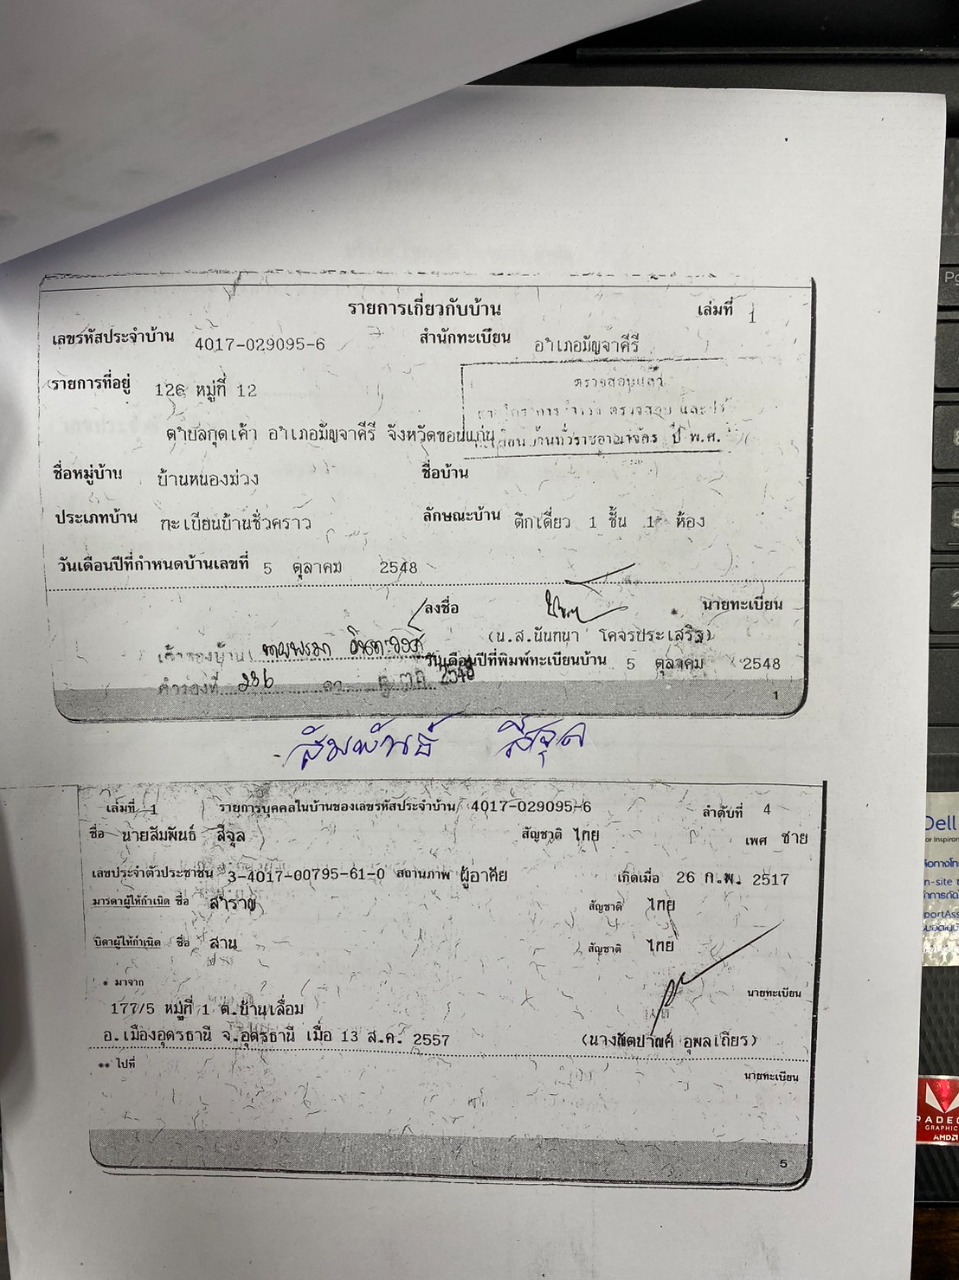 รายการเกี่ยวกับบ้าน เล่มที่ 1
เลขรหัสประจำบ้าน 4017-029095-6 สำนักทะเบียน อำเภอมัญจาคีรี
รายการที่อยู่ 126 หมู่ที่ 12
ตรวจสอบแล้ว
ตำบลกุดเค้า อำเภอมัญจาคีรี จังหวัดขอนแก่น
ทั่วราชอาณาจักร ปี พ.ศ.
ชื่อหมู่บ้าน บ้านหนองม่วง ชื่อบ้าน
ประเภทบ้าน ทะเบียนบ้านชั่วคราว ลักษณะบ้าน ตึกเดี่ยว 1 ชั้น 1 ห้อง
วันเดือนปีที่กำหนดบ้านเลขที่ 5 ตุลาคม 2548
ลงชื่อ นายทะเบียน
(น.ส.นันทนา โคจรประเสริฐ)
เจ้าของบ้าน
วันเดือนปีที่พิมพ์ทะเบียนบ้าน 5 ตุลาคม 2548
คำร้องที่ 236 2548
1
สัมพันธ์ สีจุล
เล่มที่ 1 รายการบุคคลในบ้านของเลขรหัสประจำบ้าน 4017-029095-6 ลำดับที่ 4
ชื่อ นายสัมพันธ์ สีจุล สัญชาติ ไทย เพศ ชาย
เลขประจำตัวประชาชน 3-4017-00795-61-0 สถานภาพ ผู้อาศัย เกิดเมื่อ 26 ก.พ. 2517
มารดาผู้ให้กำเนิด ชื่อ สำราญ สัญชาติ ไทย
บิดาผู้ให้กำเนิด ชื่อ สาน สัญชาติ ไทย
* มาจาก นายทะเบียน
177/5 หมู่ที่ 1 ต.บ้านเลื่อม
อ.เมืองอุดรธานี จ.อุดรธานี เมื่อ 13 ส.ค. 2557 อุพลเถียร)
** ไปที่ นายทะเบียน
5
Dell
RADEON
GRAPHICS
AMD